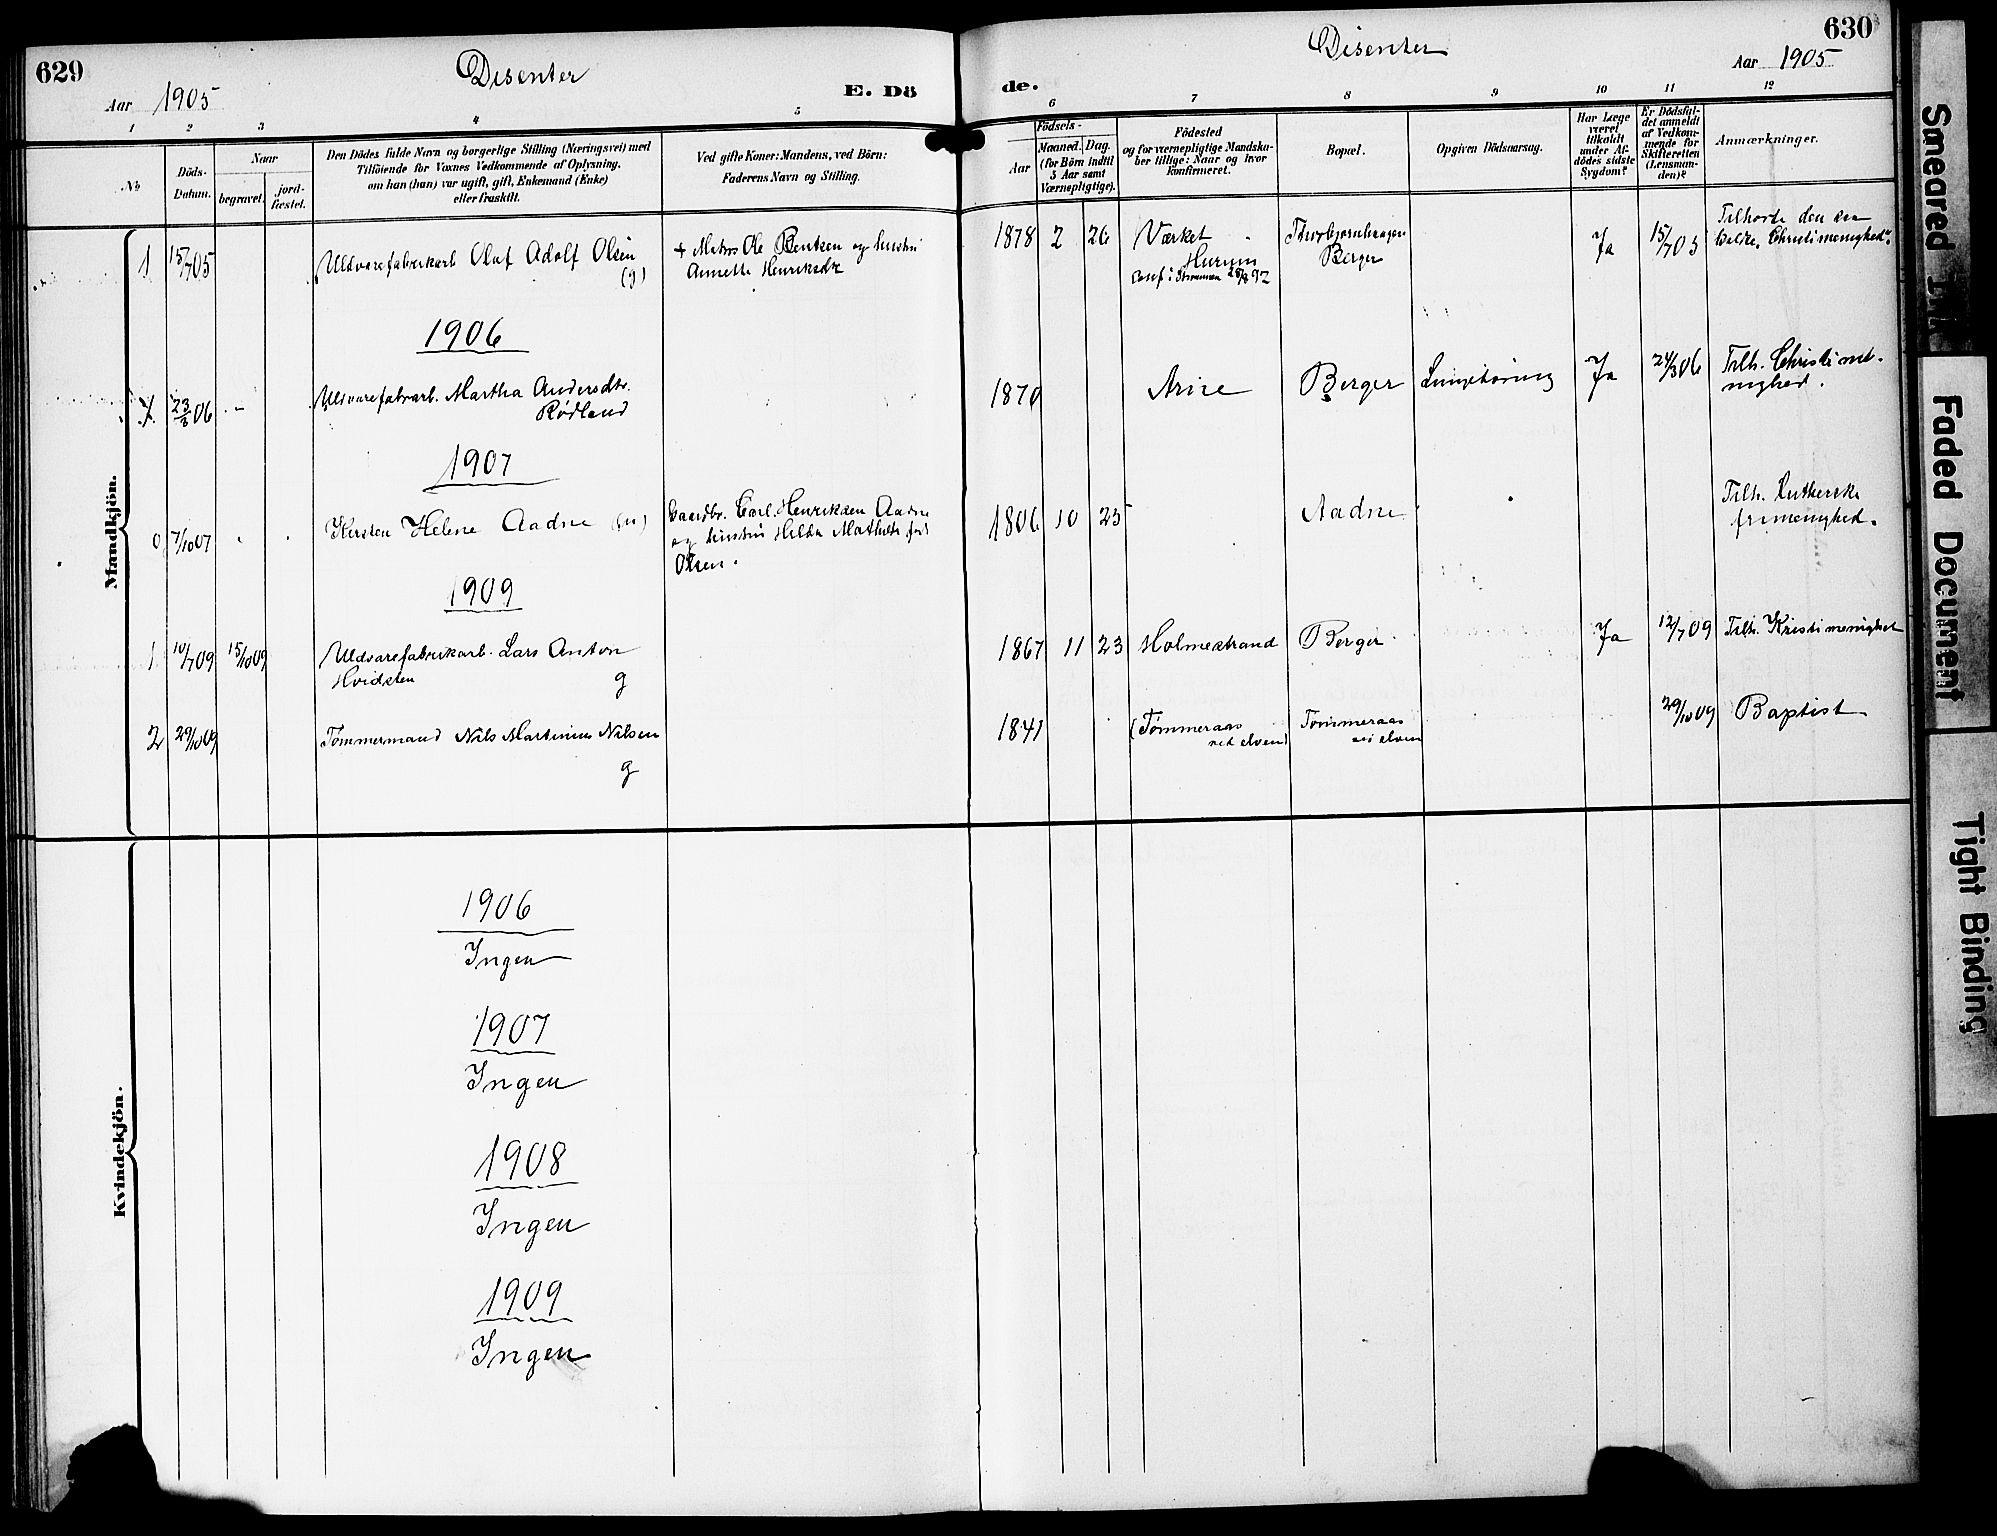 629
Disenter
Aar 1905
E. Dö
1 2 3 4 5
No
Döds-
Datum.
Naar
begravet.
jord-
fæstet.
Den Dödes fulde Navn og borgerlige Stilling (Næringsvei) med
Tilföiende för Voxnes Vedkommende af Oplysning,
om han (hun) var ugift, gift, Enkemand (Enke)
eller fraskilt.
Ved gifte Koner: Mandens, ved Börn:
Faderens Navn og Stilling.
Mandkjön.
1 15/7 05 Uldvarefabrikarb Olaf Adolf Olsen
(g)
+ Matros Ole Bentsen og hustru
Annette Henriksdtr
1906
23/3 06 Uldvarefabrarb. Martha Andersdtr.
Rødland
1907
0 7/10 07 Kirsten Helene Aadne
Gaardbr. Carl Henriksen Aadne
og hustru Hilda Mathilde født
Olsen.
1909
1 10/7 09 15/10 09 Uldvarefabrikarb. Lars Anton
Hvidsten g
2 29/10 09 Tømmermand Nils Martinius Nilsen
g
Kvindekjön.
1906
Ingen
1907
Ingen
1908
Ingen
1909
Ingen
630
Disenter
Aar 1905
de.
6 7 8 9 10 11 12
Födsels-
Aar
Maaned. Dag.
(for Börn indtil
5 Aar samt
Værnepligtige).
Födested
og for værnepligtige Mandska-
ber tillige: Naar og hvor
konfirmeret.
Bopæl.
Opgiven Dödsaarsag.
Har Læge
været
tilkaldt
under Af-
dödes sidste
Sygdom?
Er Dödsfal-
det anmeldt
af Vedkom-
mende for
Skifteretten
(Lensman-
den)?
Anmærkninger.
1878 2 26 Værket
Hurum
Berger
Ja 15/7 05 Tilhørte den
Christimenighed".
1870 Berger Ja 24/3 06 Tilh. Christime-
nighed.
10 25 Aadne Tilh. Lutherske
frimenighed.
1867 11 23 Holmestrand Berger Ja 12/7 09 Tilh. Kristimenighet
1841 (Tømmeraas
ved elven)
Tømmeraas
ved elven
29/10 09 Baptist
Smeared Ink
Faded Document
Tight Binding